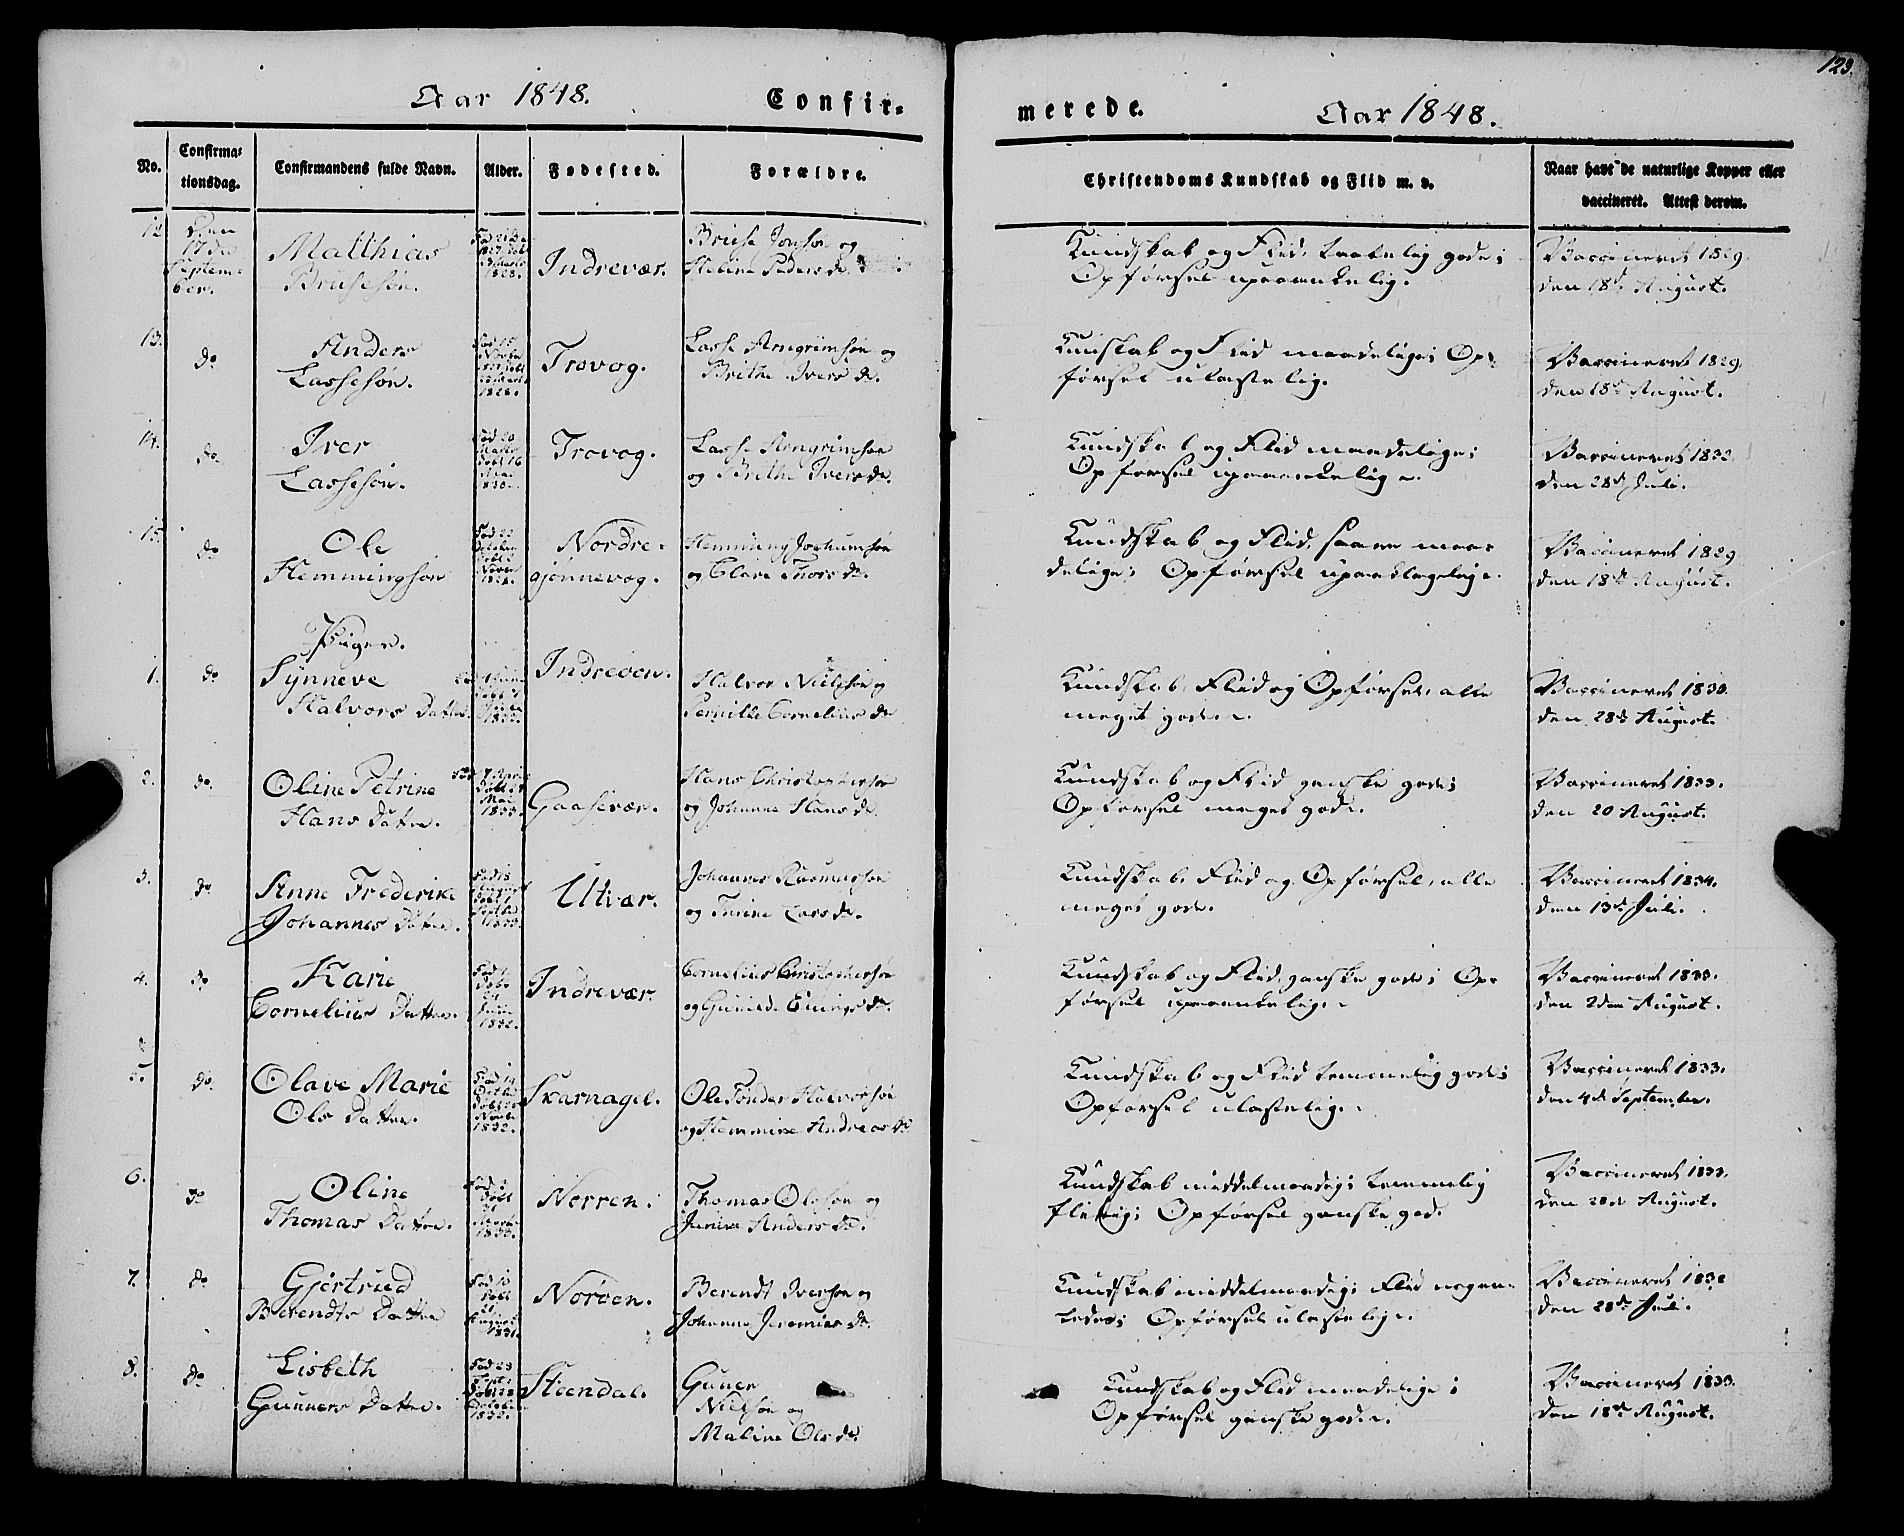 123.
Aar 1848. Confir-
merede. Aar 1848.
No. Confirma-
tionsdag. Confirmandens fulde Navn. Alder. Fødested. Forældre.
Christendoms Kundskab og Flid m. v. Naar havt de naturlige Kopper eller
vaccineret. Attest derom.
12 Den
17de
Septem
ber. Matthias
Brusesøn. 1828. Indrevær. Bruse og
Maline Peders d.
Kundskab og Flid, temmelig gode;
Opførsel upaaankelig.
Vaccineret 1829
den 18de August.
13. do Anders
Lassesøn. Fød 15
1828. Trovog. Lasse Arngrimsøn og
Brithe Ivers d.
Kunskab og Flid maadelige; Op-
førsel ulastelig.
Vaccineret 1829.
den 18de August.
14. do Iver
Lassesøn. Fød 20
Marts
Døbt 16
Mai
1830. Trovog. Lasse Arngrimsøn
og Brithe Ivers d.
Kundskab og Flid maadelige;
Opførsel upaaankelig.
Vaccineret 1833.
den 28de Juli.
15. do Ole
Hemmingsøn Fød 22
October
1828. Nordre-
gjønnevog. Hemming Jochumsøn
og Thors d.
Kundskab og Flid, saare maa-
delige; Opførsel upaaklagelig.
Vaccineret 1829
den 18de August.
Piger.
1. do Synneve
Halvors Datter. Indreøen. Halvor Nielsøn og
Pernille Cornelius d.
Kundskab, Flid og Opførsel, alle
meget gode.
Vaccineret 1830.
den 28de August.
2. do. Oline Petrine
Hans Datter. Fød 7 April
Mai
1833. Gaasevær. Hans Christophersøn
og Johanne Hans d.
Kundskab og Flid ganske gode;
Opførsel meget gode.
Vaccineret 1833.
den 20 August.
3. do Anne Frederike
Johannes Datter. 1833. Utvær. Johannes Rasmusøn
og Lars d.
Kundskab, Flid og Opførsel, alle
meget gode.
Vaccineret 1834.
den 13de Juli.
4. do Karie
Cornelius Datter. Juni
1832. Indrevær. Cornelius Christophersøn
og Gunild d.
Kundskab og Flid, ganske gode; Op-
førsel upaaankelig.
Vaccineret 1833.
den 2den August.
5. do Olave Marie
Ols Datter. Fød 19
1832. Skarnagel. Ole Halvorsøn
og Hemmine Andreas d.
Kundskab og Flid temmelig gode;
Opførsel ulastelig.
Vaccineret 1833.
den 4de September.
6. do Oline
Thomas Datter. 1833. Norren. Thomas Olesøn og
Anders d.
Kundskab middelmaadig; temmelig
flittig; Opførsel ganske god.
Vaccineret 1833.
den 28de August.
7. do Gjertrud
Berendts Datter Fød 10
Døbt
21
August
1831. Norøen. Berendt Iversøn og
Johanne Jeremias d.
Kundskab middelmaadig; Flid nogen-
ledes; Opførsel ulastelig.
Vaccineret 183
den 28de Juli.
8. do Lisbeth
Gunners Datter. Fød 23
Sept.
October
Steendal. Guner
Nielsøn og
Maline Ols d.
Kundskab og Flid maadelige;
Opførsel ganske gode.
Vaccineret 1833.
den 18de August.